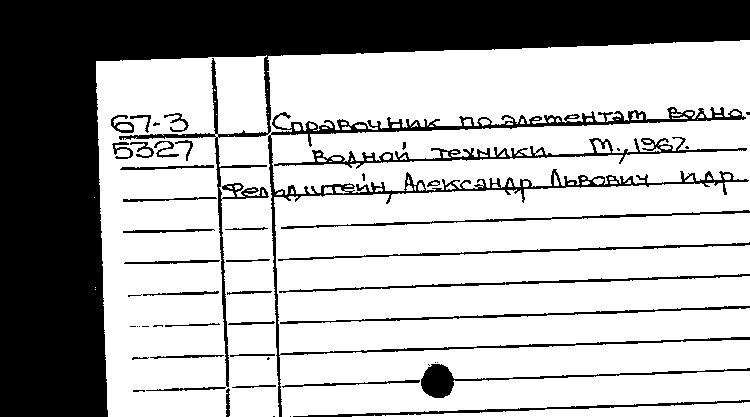 67-3 Справочник по элементам волно-
5327 водной техники. М., 1967.
Фельдштейн, Александр Львович и др.